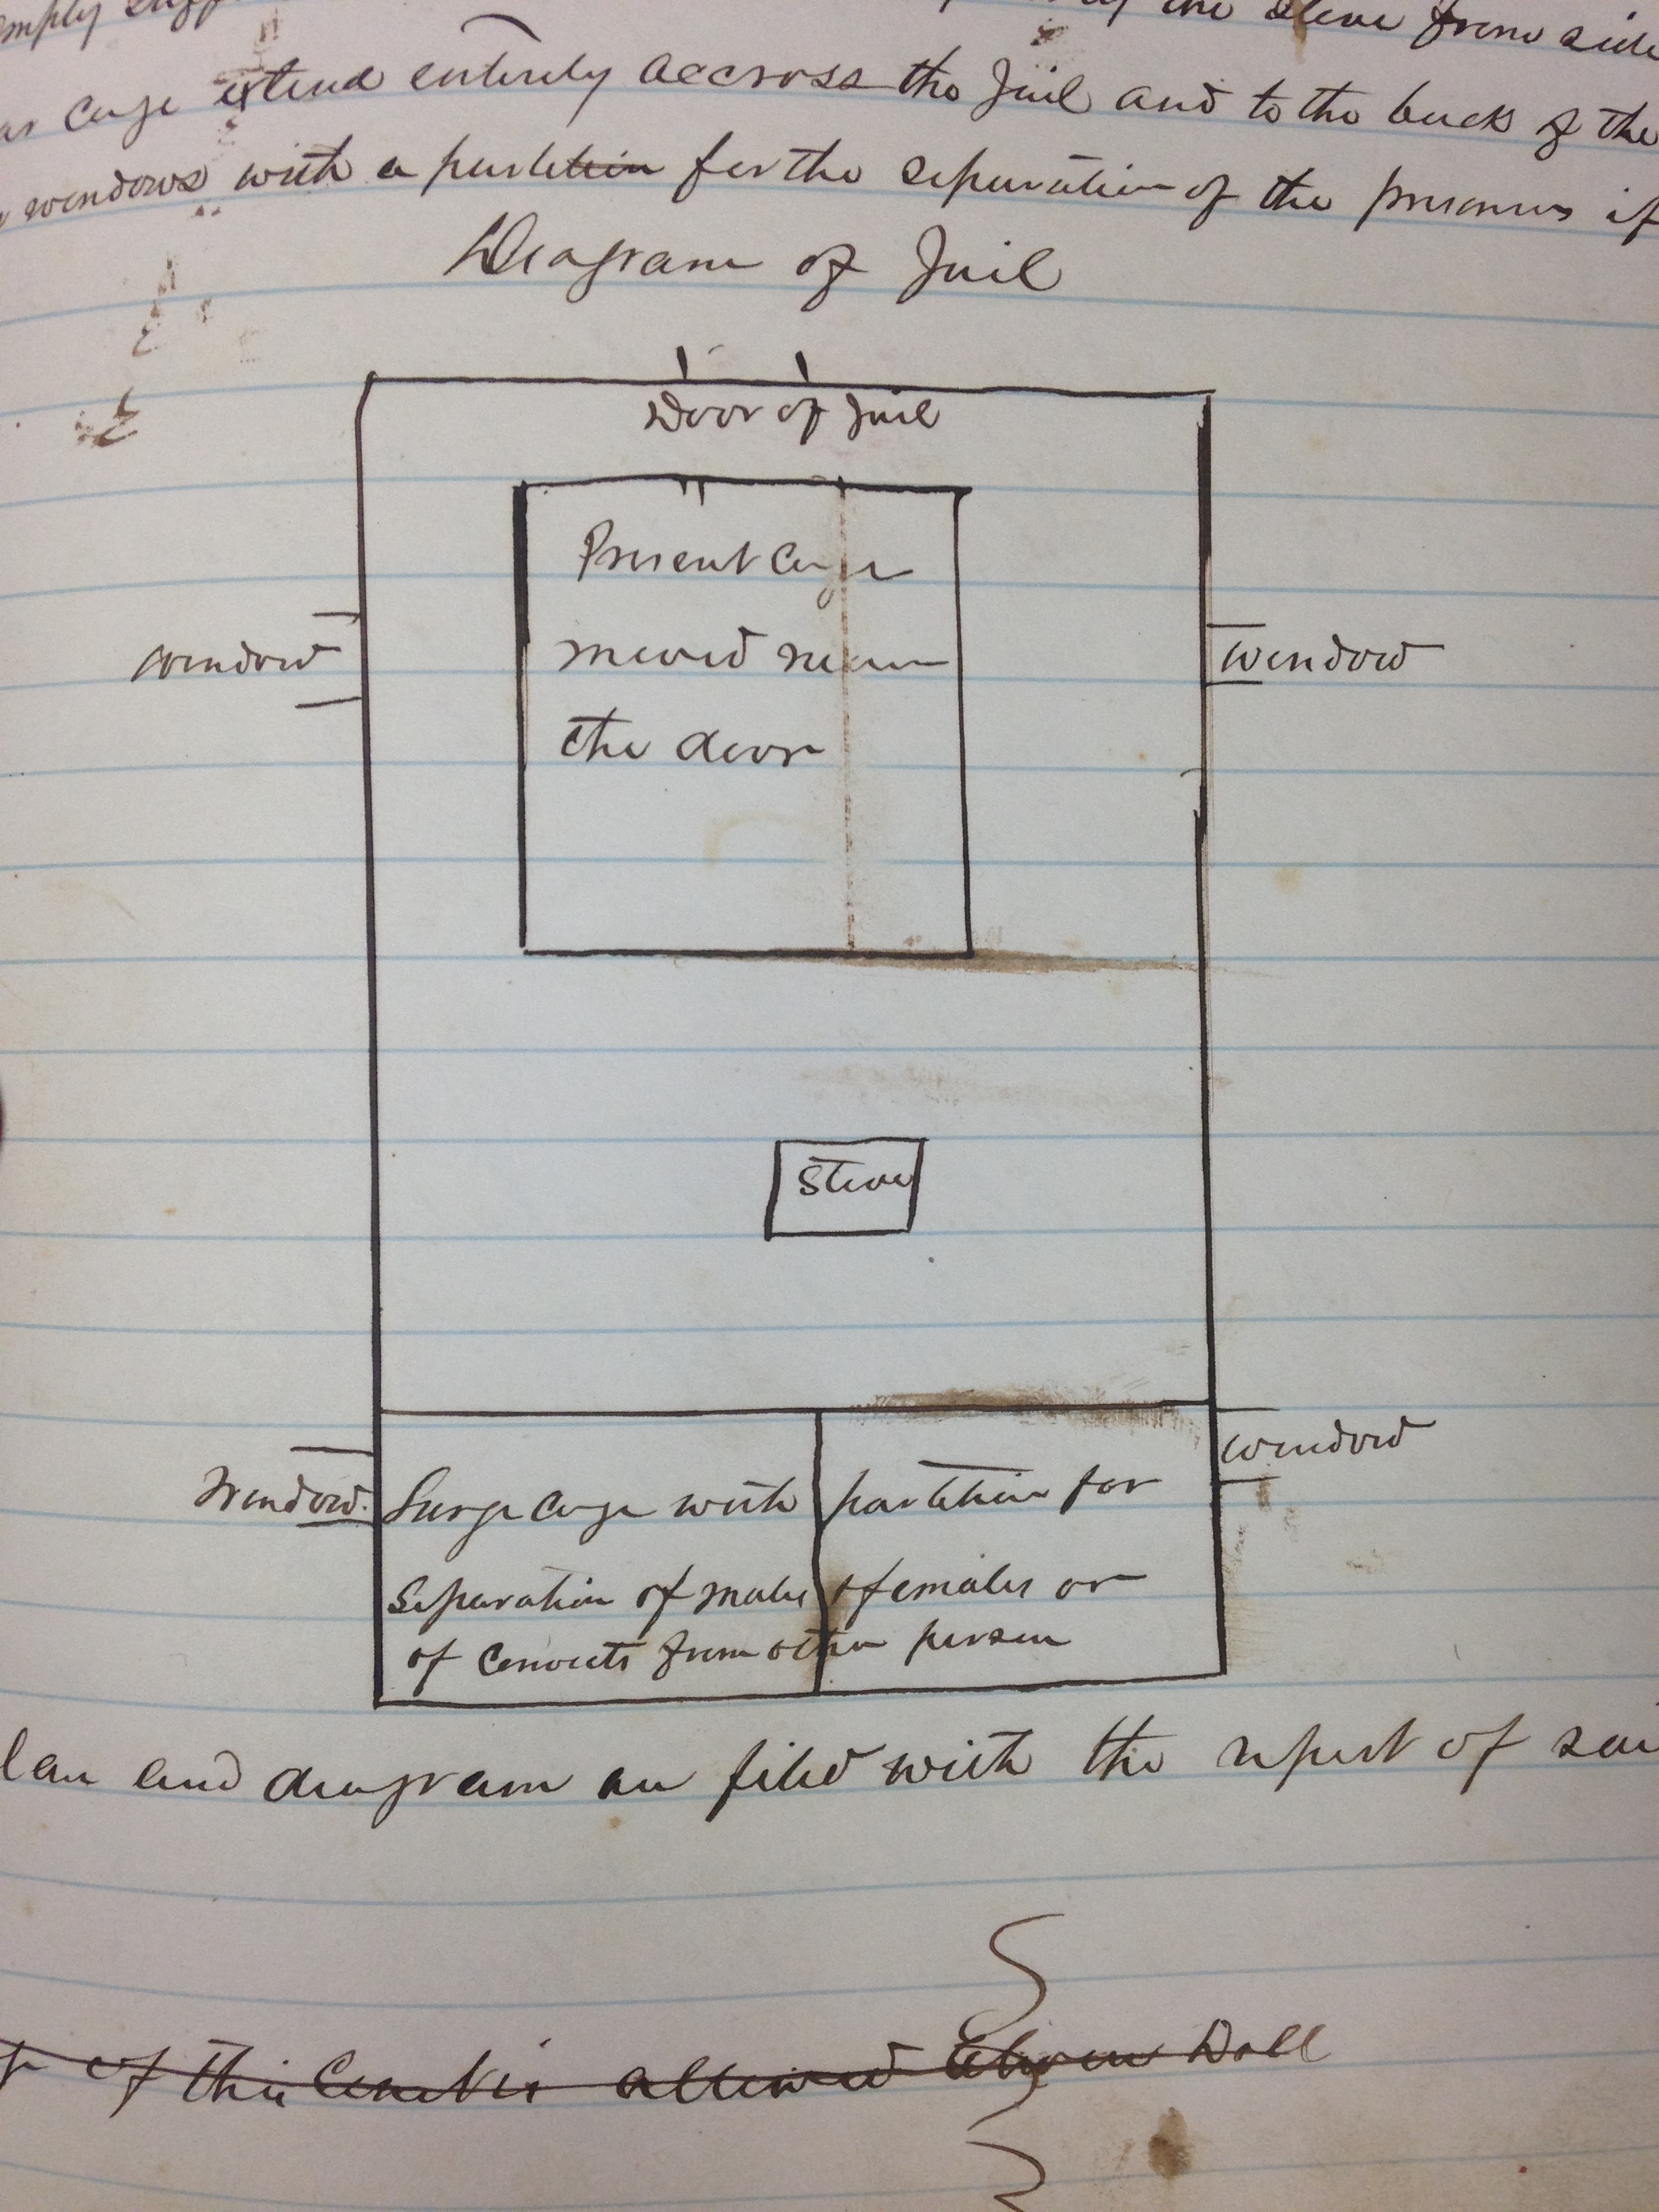 the stove from side
cage extend entirely accross the Jail and to the back of the
windows with a partition for the separation of the prisoners if
Diagram of Jail
Door of Jail
Present Cage
moved near
the door
window
window
Stove
window
window
Large cage with partition for
Separation of males & females or
of Convicts from other person
and diagram are filed with the report of
of this Court is allowed Eleven Doll